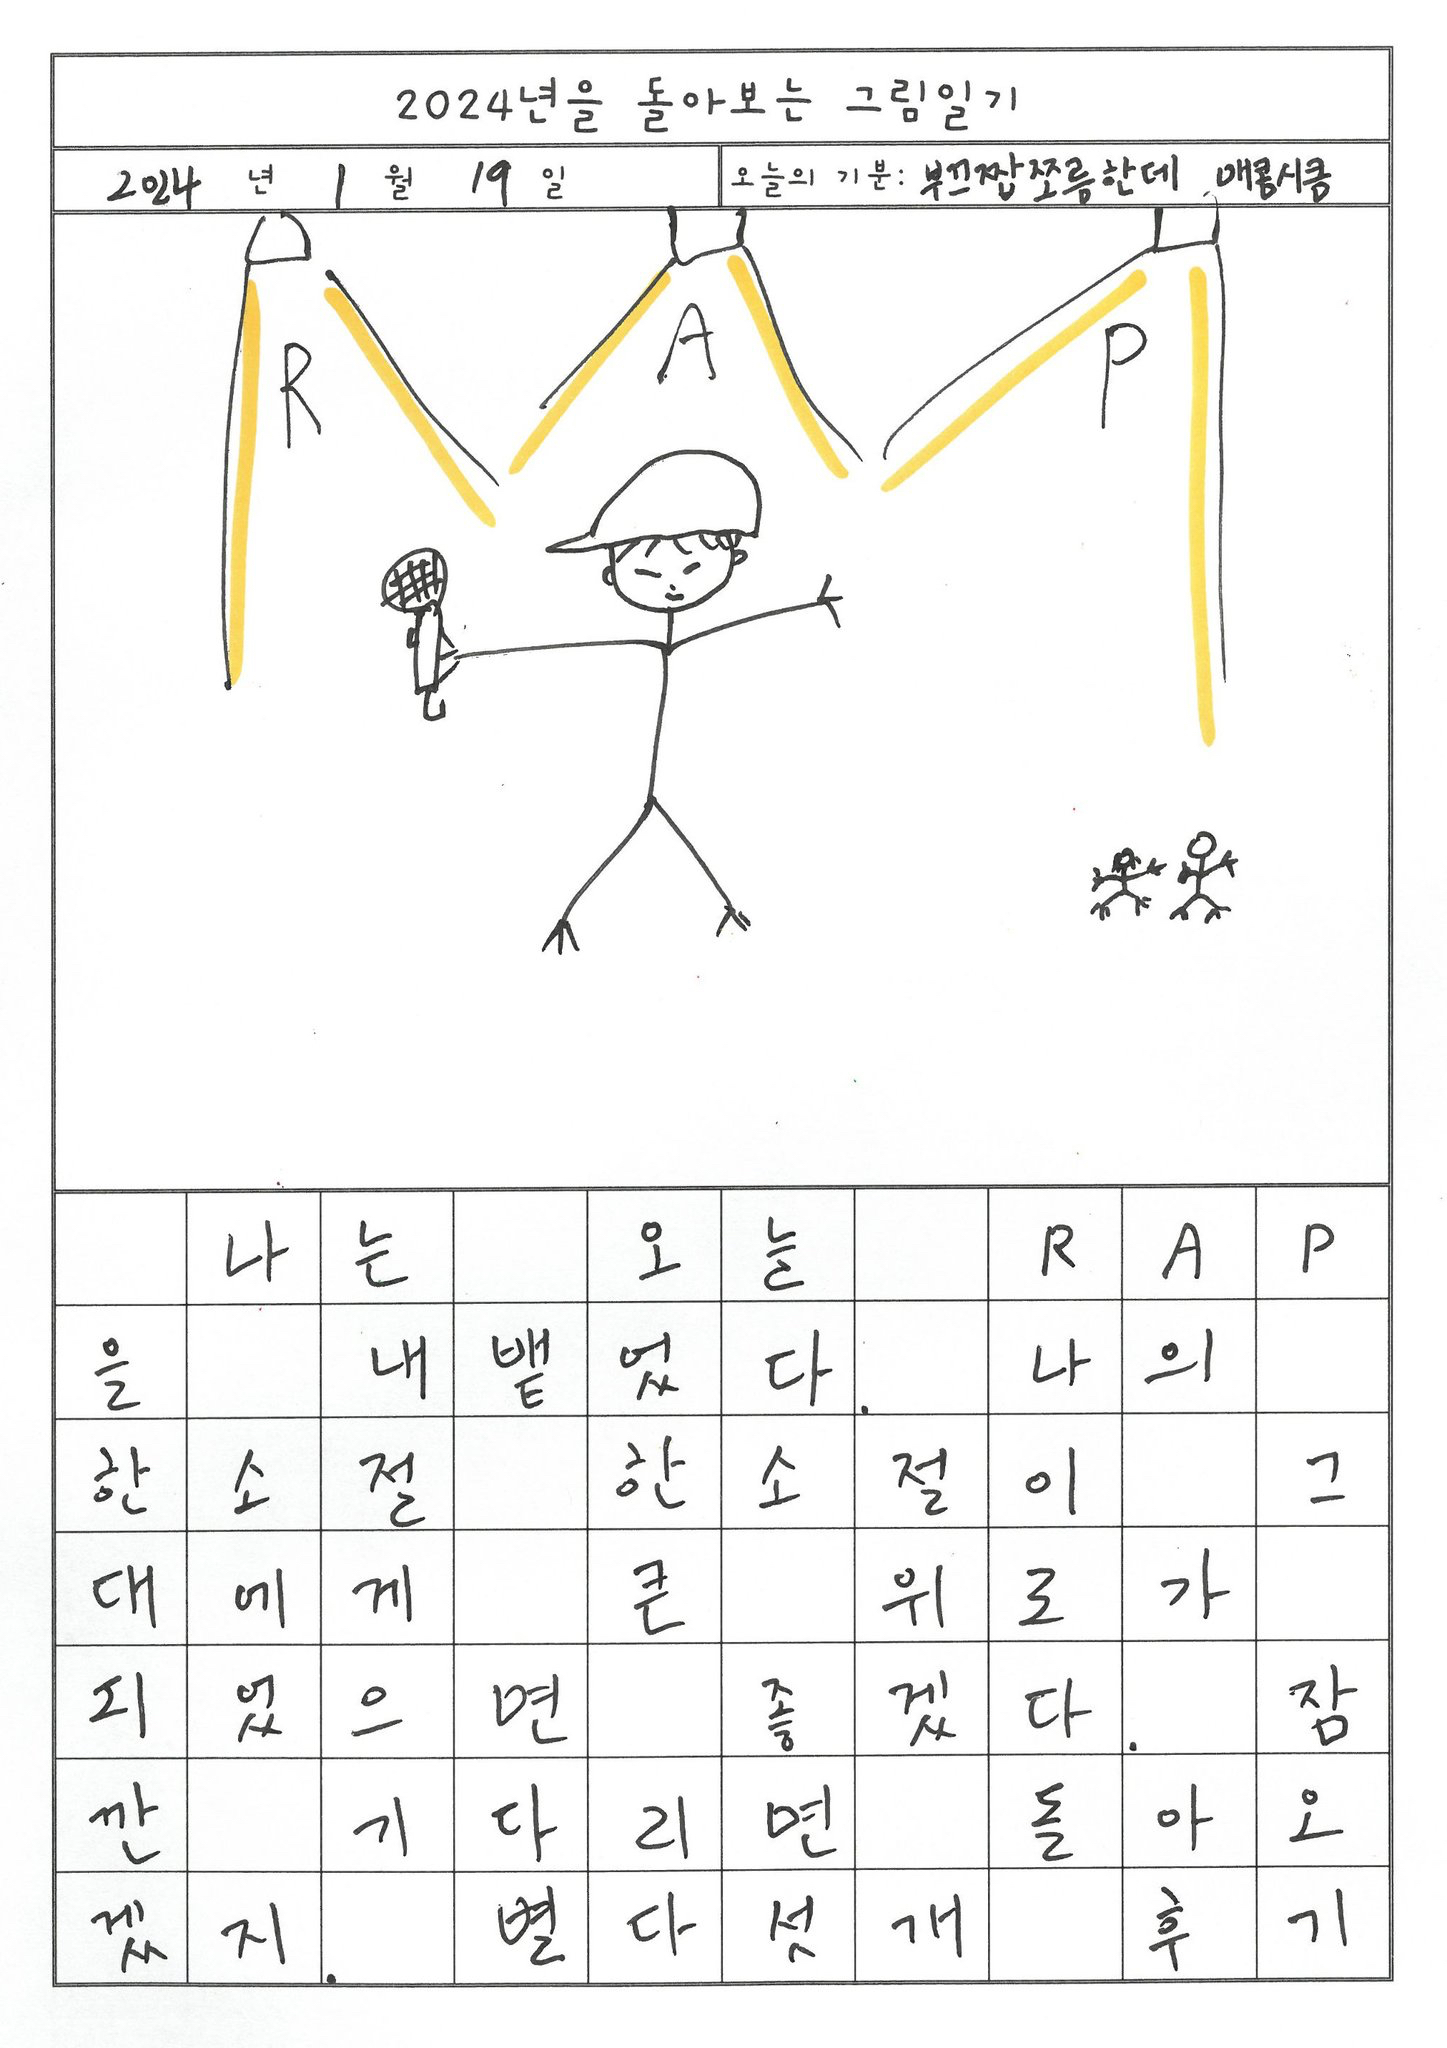 2024년을 돌아보는 그림일기
2024 년 1 월 19 일 오늘의 기분: 부끄짭쪼름한데 매콤시큼
R A P
나는 오늘 RAP
을 내뱉었다. 나의
한소절 한소절이 그
대에게 큰 위로가
되었으면 좋겠다. 잠
깐 기다리면 돌아오
겠지. 별다섯개 후기